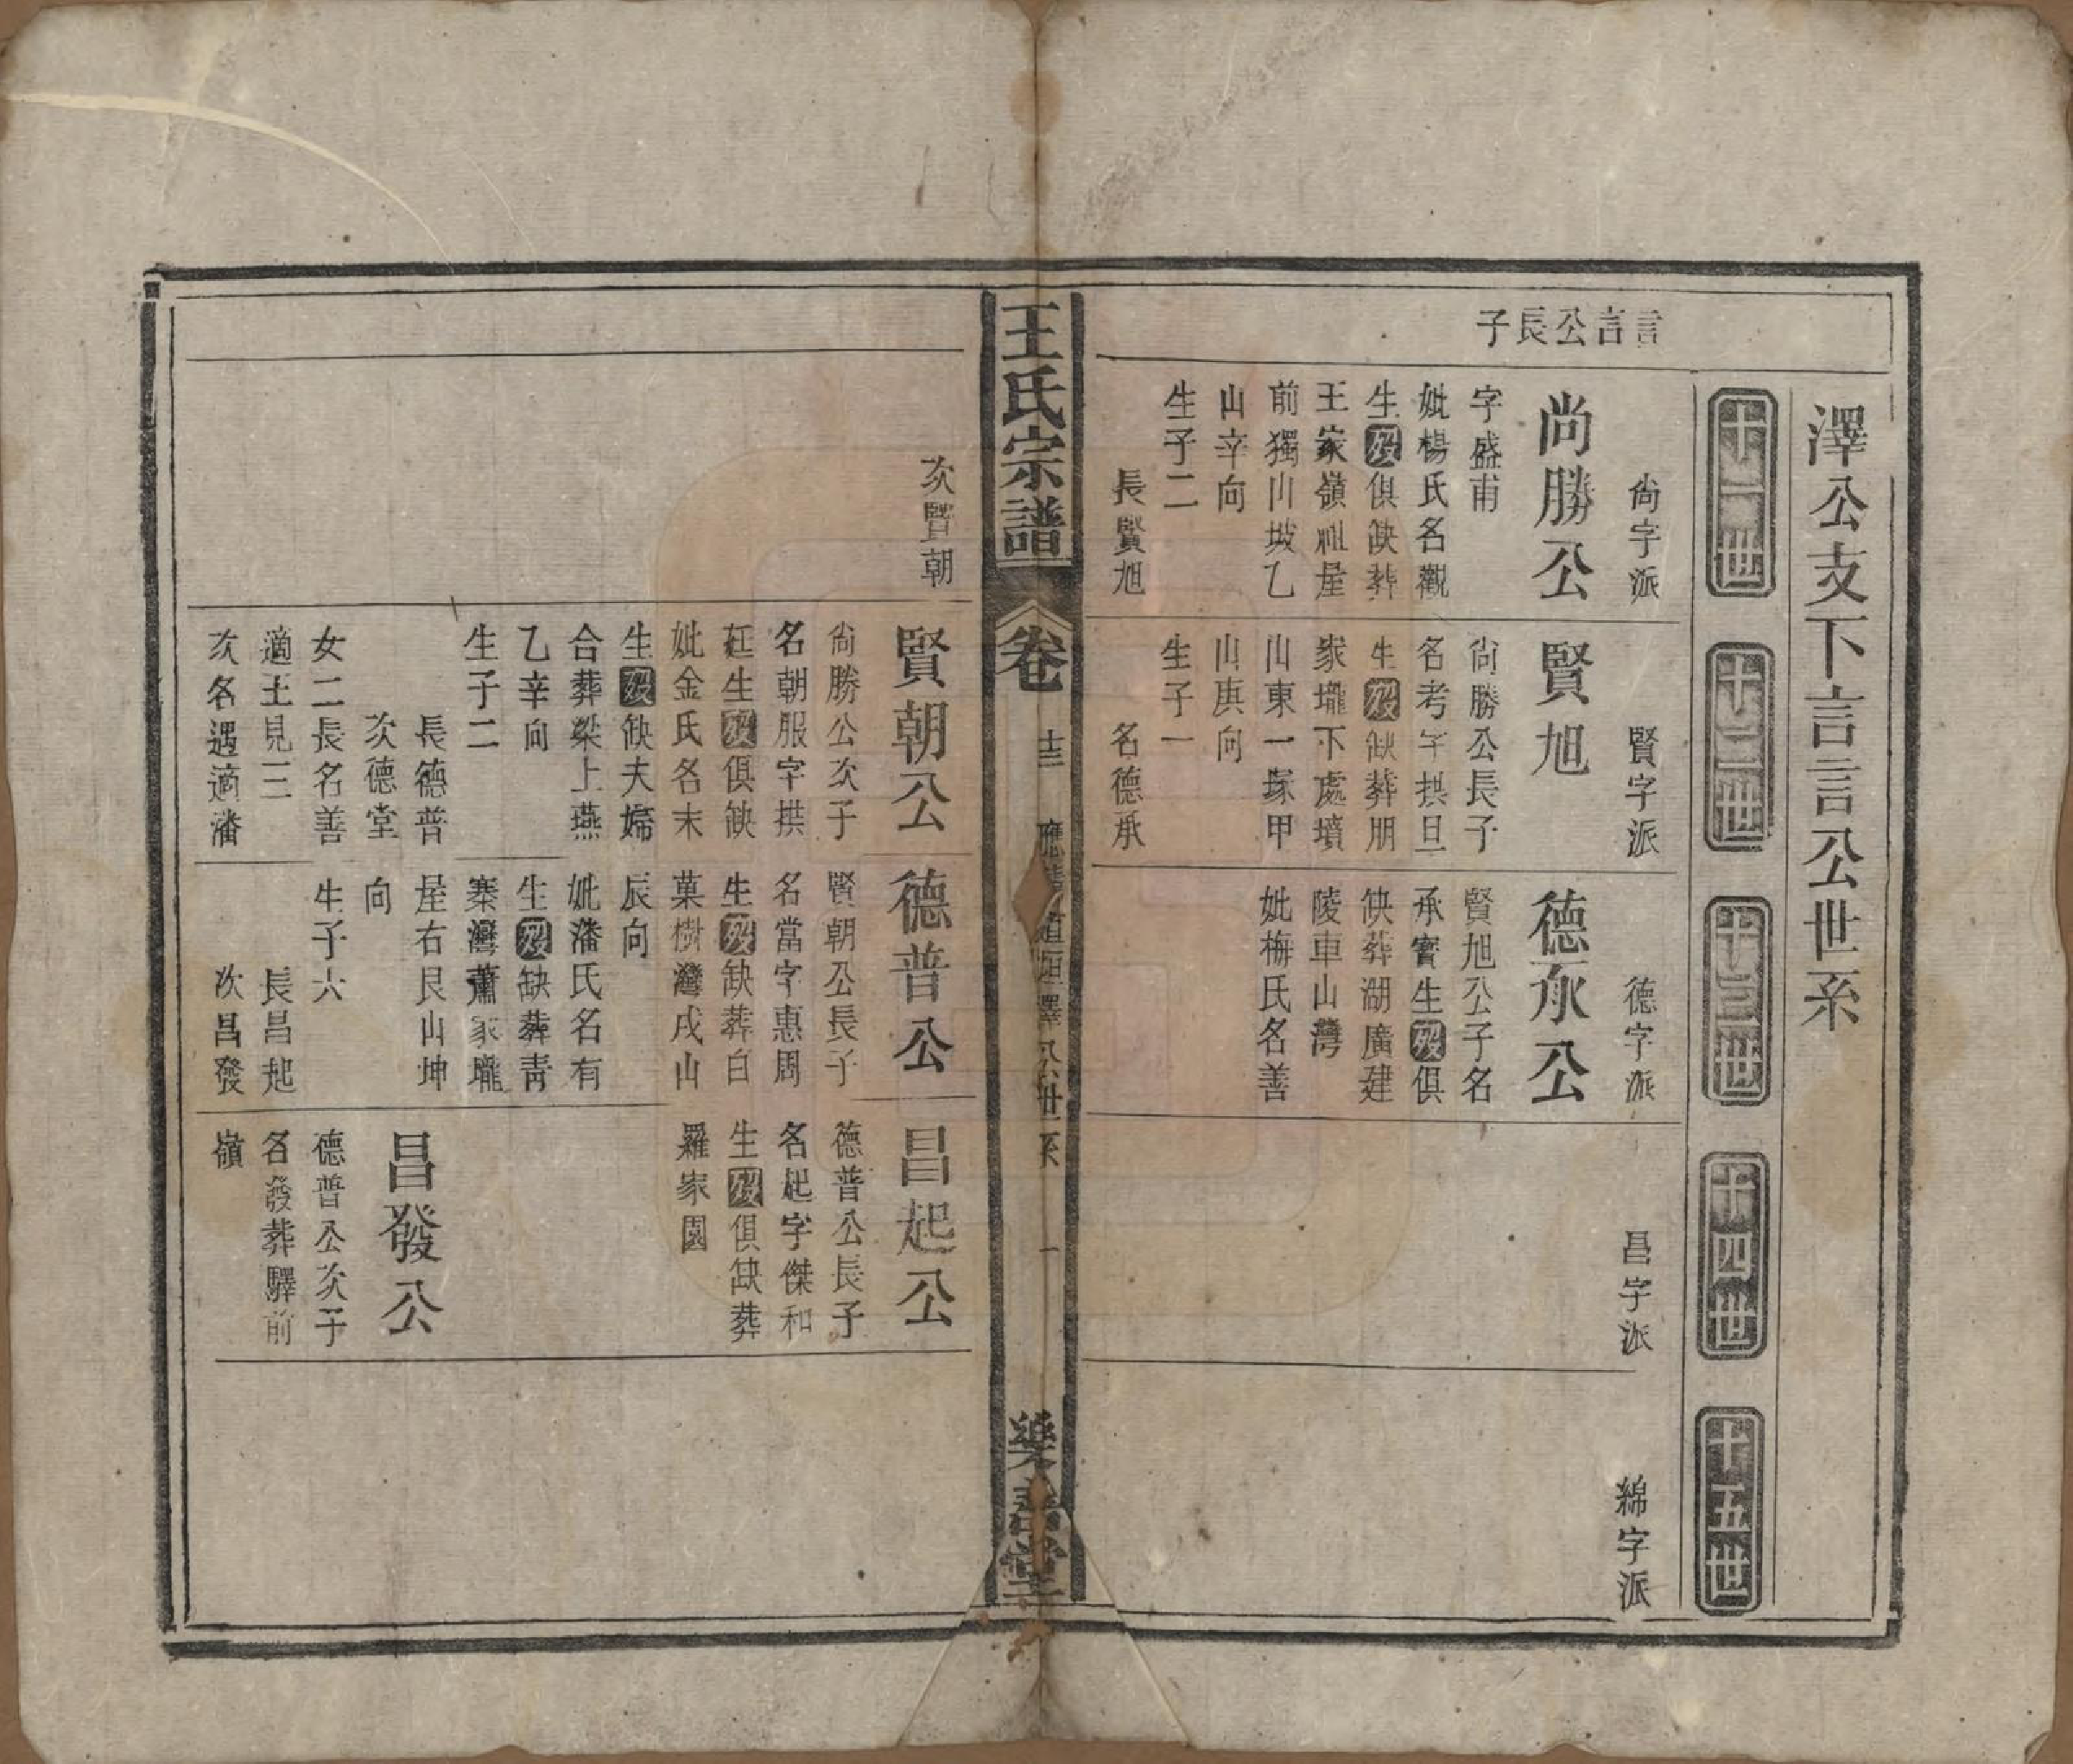 澤公支下言言公世系
十一世
十二世
十三世
十四世
十五世
言言公長子
尚字派
尚勝公
字盛甫
妣楊氏名觀
生歿俱缺葬
王家嶺祖屋
前獨山坡乙
山辛向
生子二
長賢旭
賢字派
賢旭
尚勝公長子
名考字拱旦
生歿缺葬朋
家壠下處墳
山東一塚甲
山庚向
生子一
名德承
德字派
德承公
賢旭公子名
承寳生歿俱
缺葬湖廣建
陵車山灣
妣梅氏名善
昌字派
綿字派
王氏宗譜
卷
十三
澤公世系
一
樂善堂
次賢朝
賢朝公
尚勝公次子
名朝服字拱
廷生歿俱缺
妣金氏名末
生歿缺夫婦
合葬梁上燕
乙辛向
生子二
長德普
次德堂
女二長名善
適王見三
次名遇適潘
德普公
賢朝公長子
名當字惠周
生歿缺葬白
菓樹灣戌山
辰向
妣潘氏名有
生歿缺葬青
秦灣蕭家壠
屋右艮山坤
向
生子六
長昌起
次昌發
昌起公
德普公長子
名起字傑和
生歿俱缺葬
羅家園
昌發公
德普公次子
名發葬驛前
嶺